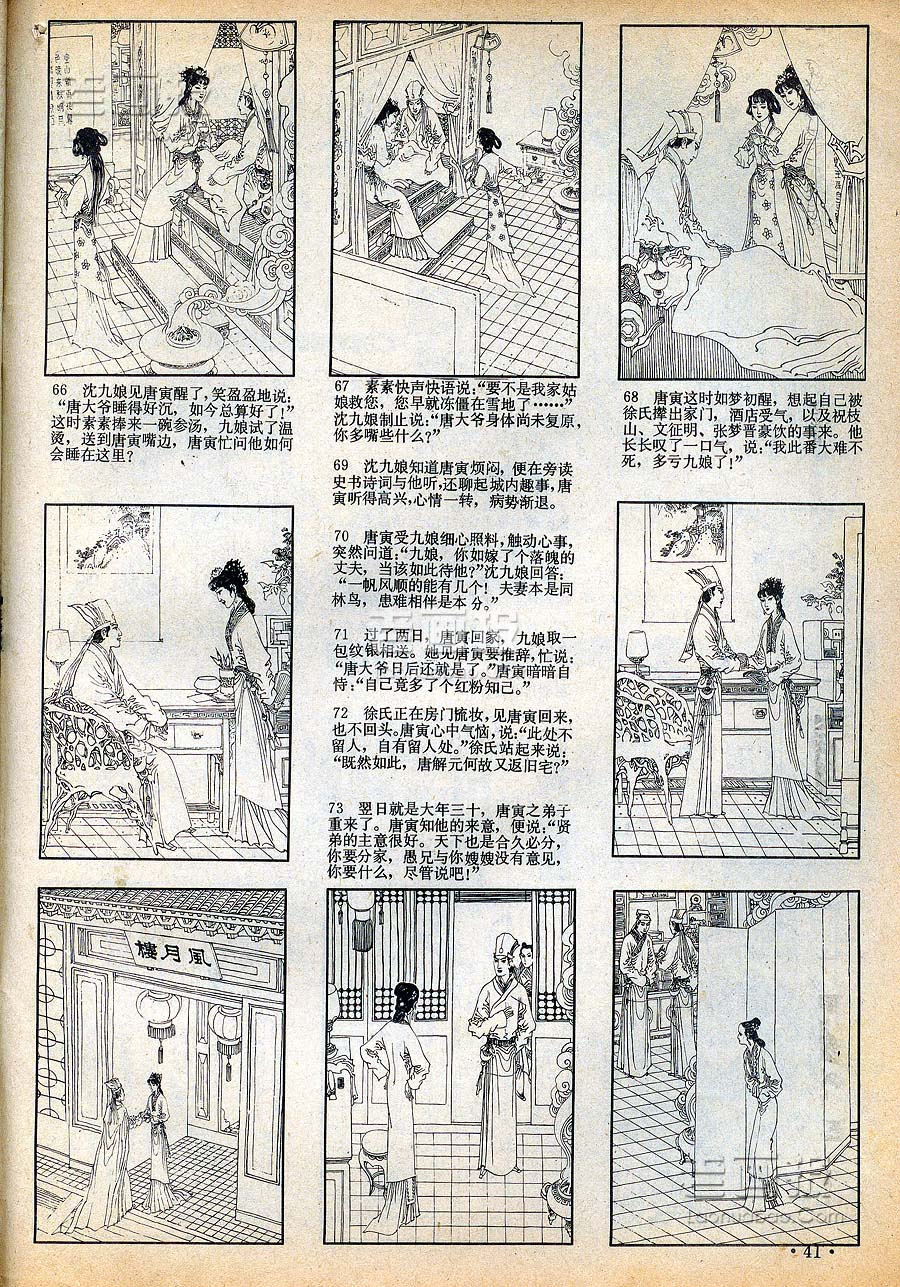 66 沈九娘见唐寅醒了，笑盈盈地说：
“唐大爷睡得好沉，如今总算好了！”
这时素素捧来一碗参汤，九娘试了温
烫，送到唐寅嘴边，唐寅忙问他如何
会睡在这里？
67 素素快声快语说：“要不是我家姑
娘救您，您早就冻僵在雪地了……”
沈九娘制止说：“唐大爷身体尚未复原，
你多嘴些什么？”
68 唐寅这时如梦初醒，想起自己被
徐氏撵出家门，酒店受气，以及祝枝
山、文征明、张梦晋豪饮的事来。他
长长叹了一口气，说：“我此番大难不
死，多亏九娘了！”
69 沈九娘知道唐寅烦闷，便在旁读
史书诗词与他听，还聊起城内趣事，唐
寅听得高兴，心情一转，病势渐退。
70 唐寅受九娘细心照料，触动心事，
突然问道：“九娘，你如嫁了个落魄的
丈夫，当该如此待他？”沈九娘回答：
“一帆风顺的能有几个！夫妻本是同
林鸟，患难相伴是本分。”
71 过了两日，唐寅回家，九娘取一
包纹银相送。她见唐寅要推辞，忙说：
“唐大爷日后还就是了。”唐寅暗暗自
恃：“自己竟多了个红粉知己。”
72 徐氏正在房门梳妆，见唐寅回来，
也不回头。唐寅心中气恼，说：“此处不
留人，自有留人处。”徐氏站起来说：
“既然如此，唐解元何故又返旧宅？”
73 翌日就是大年三十，唐寅之弟子
重来了。唐寅知他的来意，便说：“贤
弟的主意很好。天下也是合久必分，
你要分家，愚兄与你嫂嫂没有意见，
你要什么，尽管说吧！”
風月樓
·41·